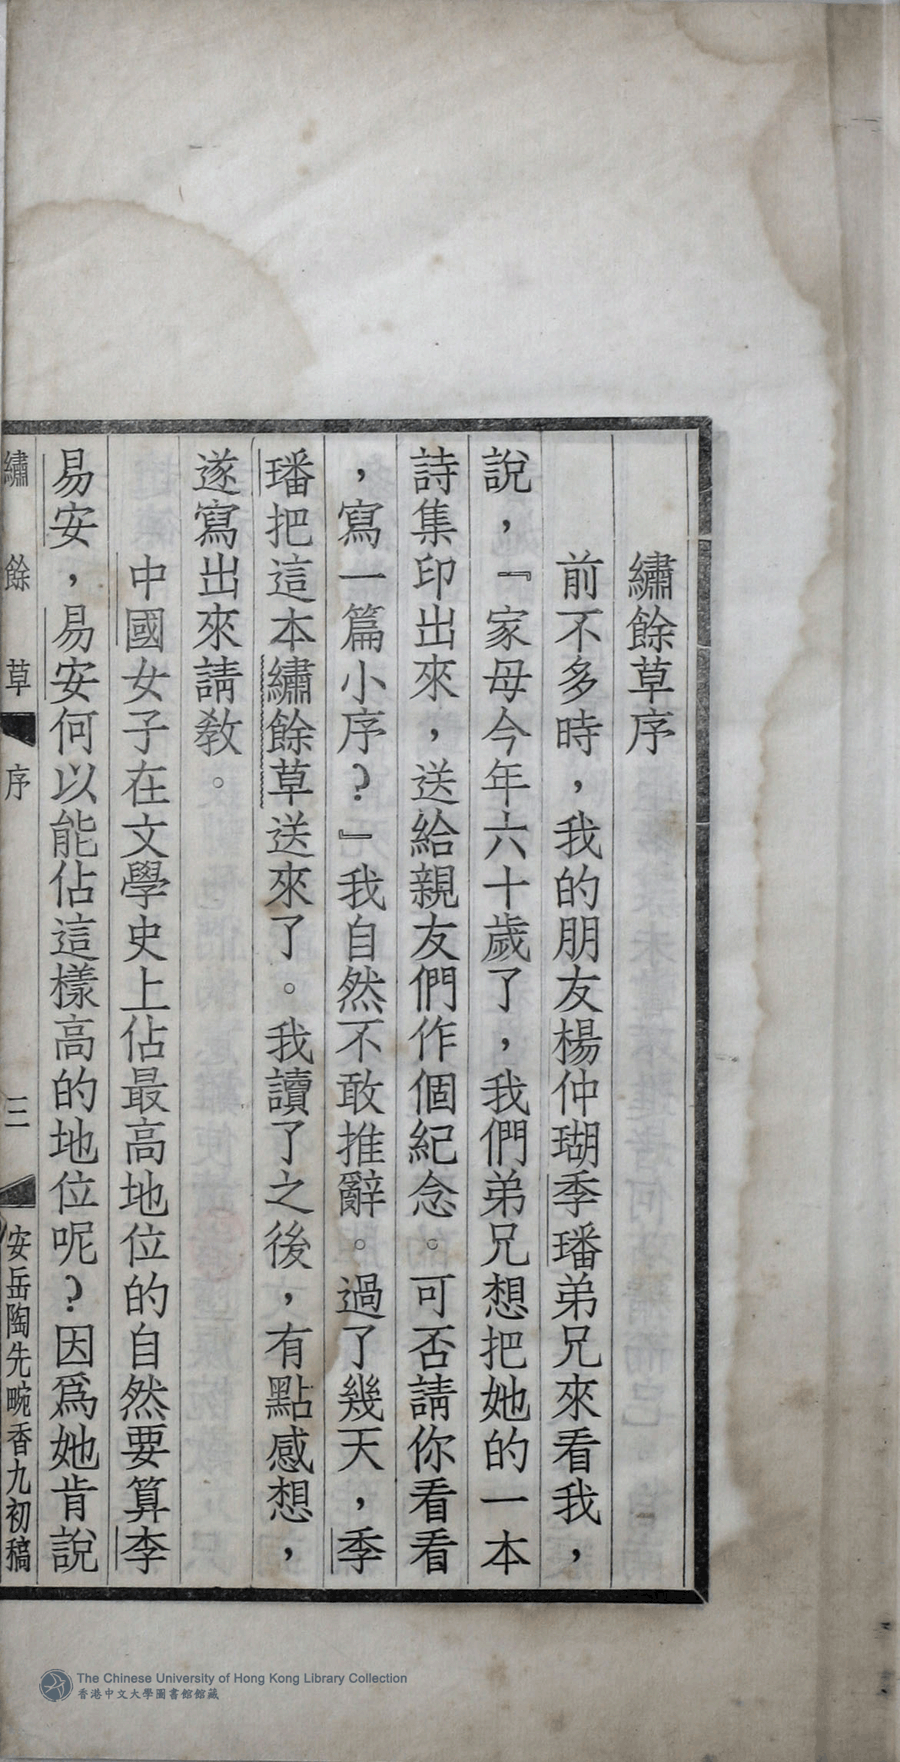 繡餘草序
前不多時，我的朋友楊仲瑚季璠弟兄來看我，
說，『家母今年六十歲了，我們弟兄想把她的一本
詩集印出來，送給親友們作個紀念。可否請你看看
，寫一篇小序？』我自然不敢推辭。過了幾天，季
璠把這本繡餘草送來了。我讀了之後，有點感想，
遂寫出來請教。
中國女子在文學史上佔最高地位的自然要算李
易安，易安何以能佔這樣高的地位呢？因爲她肯說
繡餘草 序 三 安岳陶先畹香九初稿
The Chinese University of Hong Kong Library Collection
香港中文大學圖書館館藏